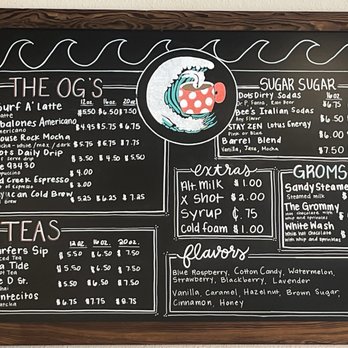 THE OG'S
12oz. 16oz. 20oz.
Surf A' Latte $5.50 $6.50 $7.50
Abalones Americano
Americano $4.95 $5.75 $6.75
House Rock Mocha
$5.75
Daily Drip
$3 $4 $5
93430
$4.50
Creek Espresso
of Espresso $3.00
Cold Brew
$5.25 $6.25 $7.25
TEAS
12oz. 16oz. 20oz.
Surfers Sip $5.50 $6.50 $7.50
Iced Tea
Tide $5.50 $6.50 $7.50
Tea
D G. $5.50 $6.50 $7.50
$6.75 $7.75 $8.75
SUGAR SUGAR
Dots Dirty Sodas 16oz.
Dr. P, Fanta, Root Beer
Bee's Italian Sodas
Any Flavor
STAY ZEN Lotus Energy
Pink or Blue
Barrel Blend
Vanilla, Java, Mocha $7.50
extras
Alt milk $1.00
X shot $2.00
Syrup ¢.75
Cold foam $1.00
GROMS
Sandy Steamer
Steamed milk
The Grommy
with whip and sprinkles
White Wash
White hot chocolate
with whip and sprinkles
flavors
Blue Raspberry, Cotton Candy, Watermelon,
Strawberry, Blackberry, Lavender
Vanilla, Caramel, Hazelnut, Brown Sugar,
Cinnamon, Honey